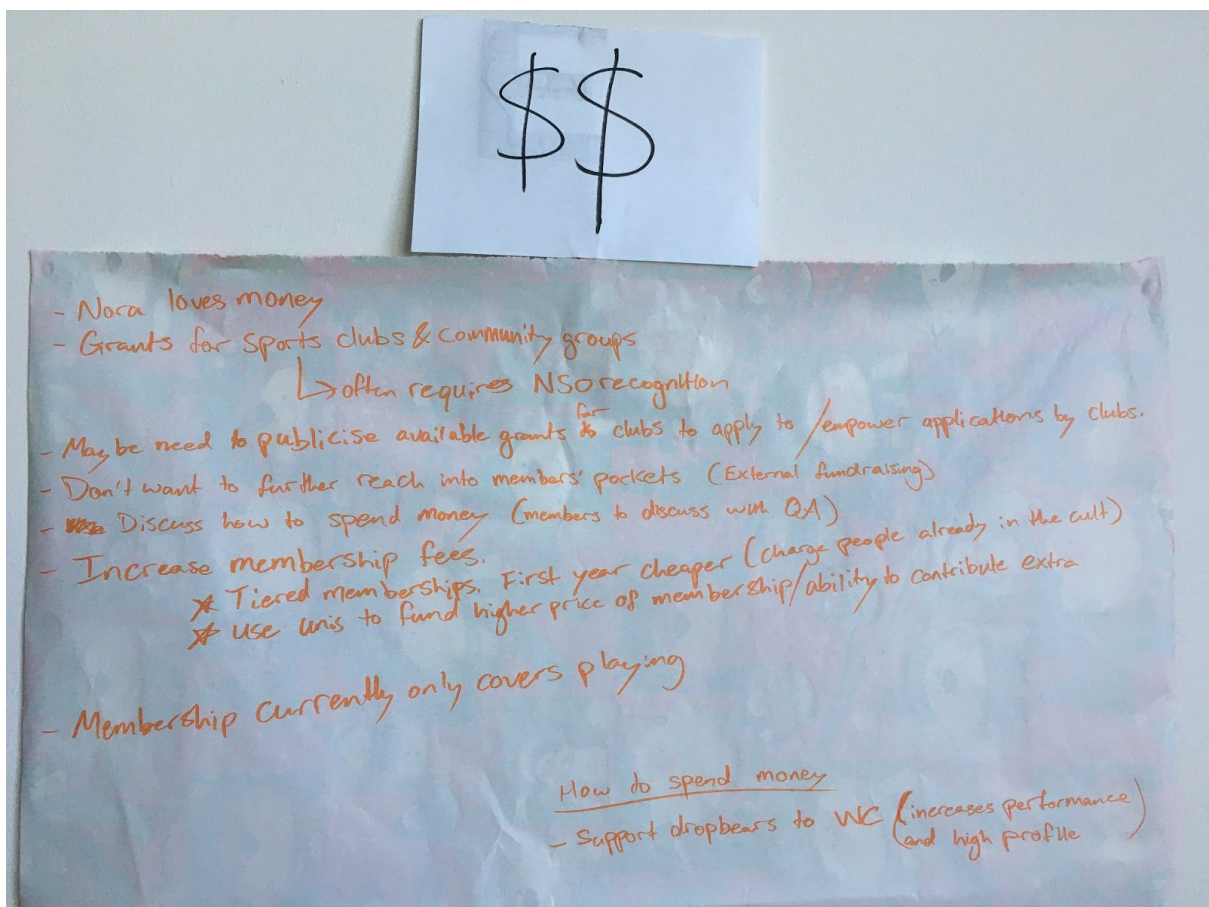 $$
- Nora loves money
- Grants for Sports clubs & community groups
↳ often requires NSO recognition
- Maybe need to publicise available grants for clubs to apply to / empower applications by clubs.
- Don't want to further reach into members' pockets (External fundraising)
- Discuss how to spend money (members to discuss with QA)
- Increase membership fees.
* Tiered memberships. First year cheaper (charge people already in the cult)
* Use unis to fund higher price of membership/ability to contribute extra
- Membership currently only covers playing
How to spend money
- Support dropbears to WC (increases performance and high profile)